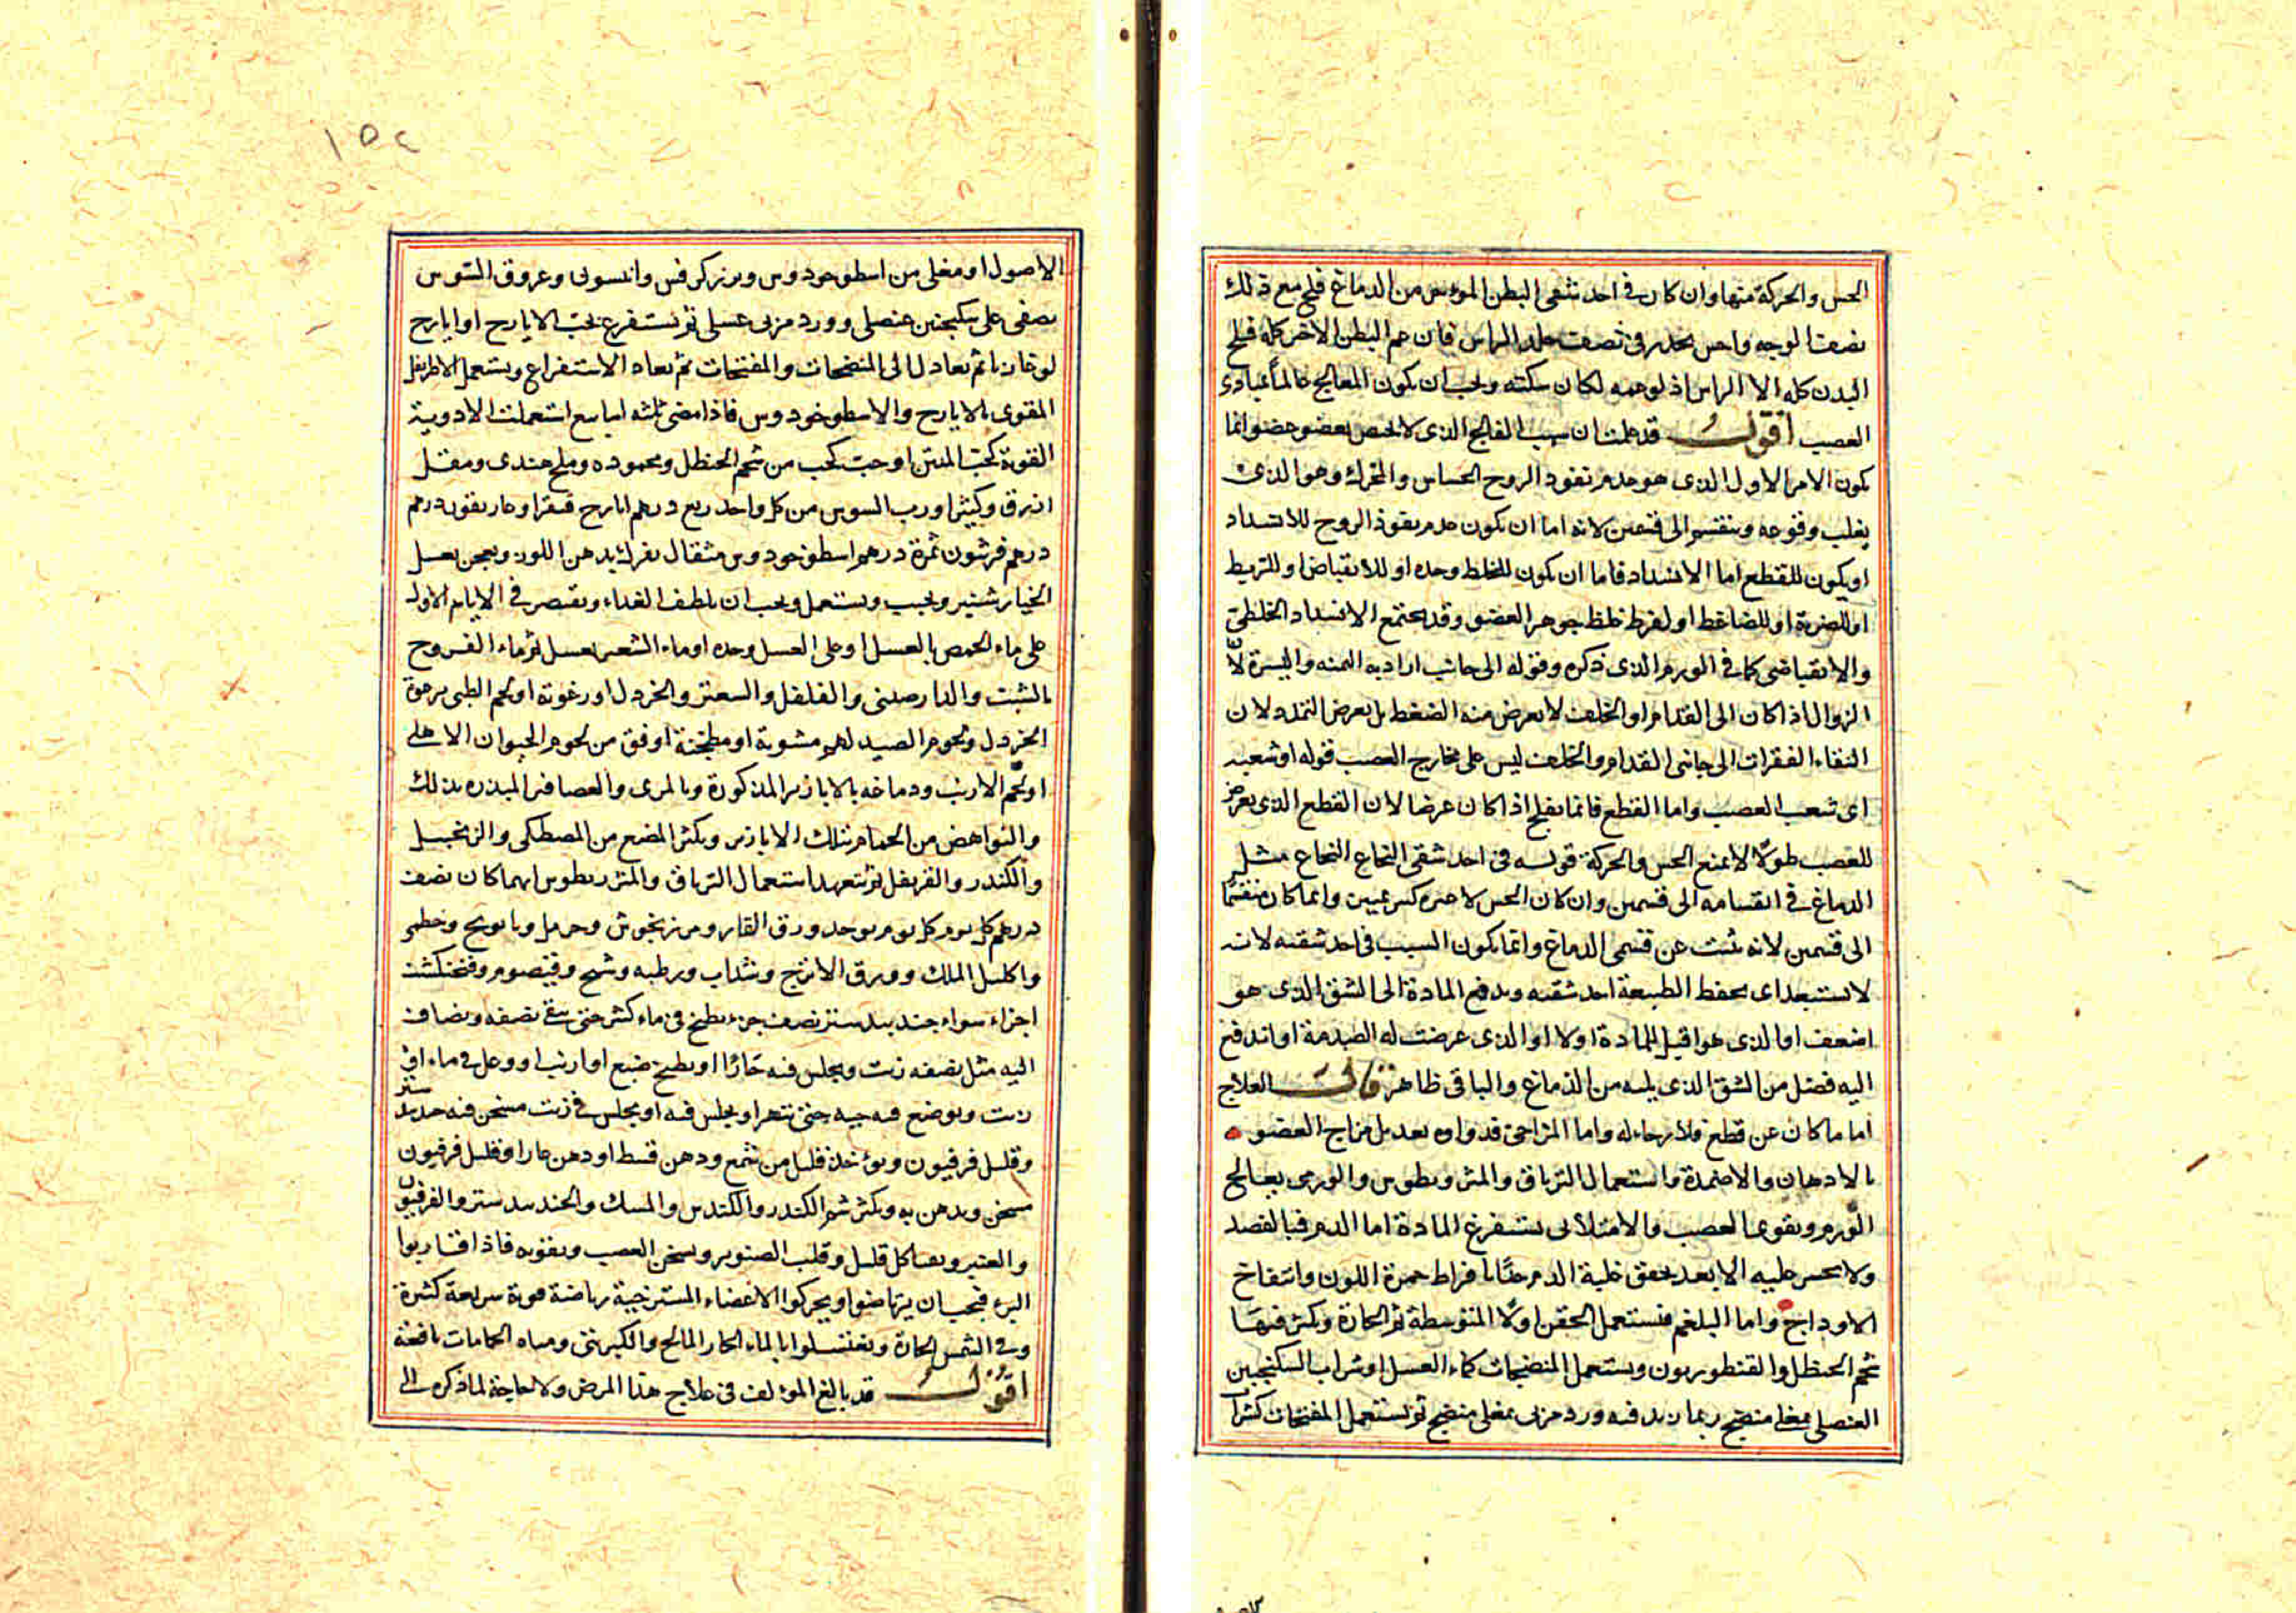 الحس والحركة منها وان كان في احد شقى البطن المؤخر من الدماغ فلج مع ذلك
نصف الوجه واحس بخدر في نصف جلد الراس فان عم البطن الاخر كله فلج
البدن كله الا الراس اذ لو عمه لكان سكته ويجب ان يكون المعالج عالما بمبادى
العصب اقول قد علمت ان سبب الفالج الذى لا يختص بعضو عضو انما
يكون الامر الاول الذى هو عدم نفوذ الروح الحساس والمحرك وهو الذى
يغلب وقوعه وينقسم الى قسمين لانه اما ان يكون عدم نفوذ الروح للانسداد
او يكون للقطع اما الانسداد فاما ان يكون للخلط وحده او للانقباض او للتربط
او للضربة او للضاغط او لفرط غلظ جوهر العضو وقد يجتمع الانسداد الخلطى
والانقباضى كما في الورم الذى ذكره وقوله الى جانب اراد به اليمنه واليسرة لان
الزوال اذا كان الى القدام او الخلف لا يعرض منه الضغط بل يعرض التمدد لان
التقاء الفقرات الى جانبى القدام والخلف ليس على مخارج العصب قوله او شعبه
اى شعب العصب واما القطع فانما يفلج اذا كان عرضا لان القطع الذى يعرض
للعصب طولا لا يمنع الحس والحركة قوله في احد شقى النخاع النخاع مثل
الدماغ في انقسامه الى قسمين وان كان الحس لا يميزه وانما كان منقسما
الى قسمين لانه نبت عن قسمى الدماغ وانما يكون السبب في احد شقيه لانه
لا يستبعد اى يحفظ الطبيعة احد شقيه ويدفع المادة الى الشق الذى هو
اضعف او الذى هو اقبل للمادة اولا او الذى عرضت له الصدمة او اندفع
اليه فضل من الشق الذى يليه من الدماغ والباقى ظاهر قال العلاج
اما ما كان عن قطع فلا رجاء له واما المزاجى فدواوه تعديل مزاج العضو
بالادهان والاضمدة واستعمال الترياق والمثروديطوس والورمى يعالج
الورم ويقوى العصب والامتلائى يستفرغ المادة اما الدم فبالفصد
ولا يجسر عليه الا بعد تحقق غلبة الدم جدا بافراط حمرة اللون وانتفاخ
الاوداج واما البلغم فتستعمل الحقن اولا المتوسطة ثم الحارة ويكثر فيها
شحم الحنظل والقنطوريون ويستعمل المنضجات كماء العسل او شراب السكنجبين
العنصلى بمغلى منضج ربما زيد فيه ورد مربى بمغلى منضج ثم تستعمل المفتحات كشراب
الاصول او مغلى من اسطوخودوس وبزر كرفس وانيسون وعروق السوس
يصفى على سكنجبين عنصلى وورد مربى عسلى ثم تستفرغ بحب الايارج او ايارج
لوغاذيا ثم تعاود الى المنضجات والمفتحات ثم يعاد الاستفراغ ويستعمل الاطريفل
المقوى بالايارج والاسطوخودوس فاذا مضى ثلثه اسابيع استعملت الادوية
القوية كحب المنتن او حب يحبب من شحم الحنظل ومحموده وملح هندى ومقل
ازرق وكثيرا ورب السوس من كل واحد ربع درهم ايارج فيقرا وغاريقون درهم
درهم فرشون ثمرة درهم اسطوخودوس مثقال يفرك بدهن اللوز ويعجن بعسل
الخيار شنبر ويحبب ويستعمل ويجب ان يلطف الغذاء ويقتصر في الايام الاول
على ماء الحمص بالعسل او على العسل وحده او ماء الشعير بعسل ثم ماء الفروج
بالشبت والدارصينى والفلفل والسعتر والخردل او رغوته او لحم الظبى برغوة
الخردل ولحوم الصيد لهم مشوية او مطجنة اوفق من لحوم الحيوان الاهلى
او لحم الارنب ودماغه بالابازير المذكورة وبالمرى والعصافير المبزره بذلك
والنواهض من الحمام بتلك الابازير ويكثر المضغ من المصطكى والزنجبيل
والكندر والقرنفل ثم يتعهد استعمال الترياق والمثروديطوس ايهما كان نصف
درهم كل يوم كل يوم يوخذ ورق الغار ومرزنجوش وحرمل وبابونج وخطمى
واكليل الملك وورق الاترج وسذاب ورطبه وشيح وقيصوم وفنجنكشت
اجزاء سواء جندبيدستر نصف جزء يطبخ في ماء كثير حتى يبقى نصفه ويضاف
اليه مثل نصفه زيت ويجلس فيه حارا او يطبخ ضبع او ارنب او وعل في ماء او في
زيت ويوضع فيه حيه حتى تتهرا ويجلس فيه او يجلس في زيت مسخن فيه جندبيدستر
وقليل فرفيون ويؤخذ قليل من شمع ودهن قسط او دهن حار او قليل فرفيون
مسخن ويدهن به ويكثر شم الكندر والكندس والمسك والجندبيدستر والفرفيون
والعنبر وبصاكل قليل وقلب الصنوبر ويسخن العصب ويقويه فاذا قاربوا
البرء فيجب ان يرتاضوا ويحركوا الاعضاء المسترخية رياضة قوية سريعة كثيرة
وفي الشمس الحارة ويغتسلوا بالماء الحار المالح والكبريتى ومياه الحمامات نافعة
اقول قد بالغ المؤلف في علاج هذا المرض ولا حاجة لما ذكره الى
١٥٤